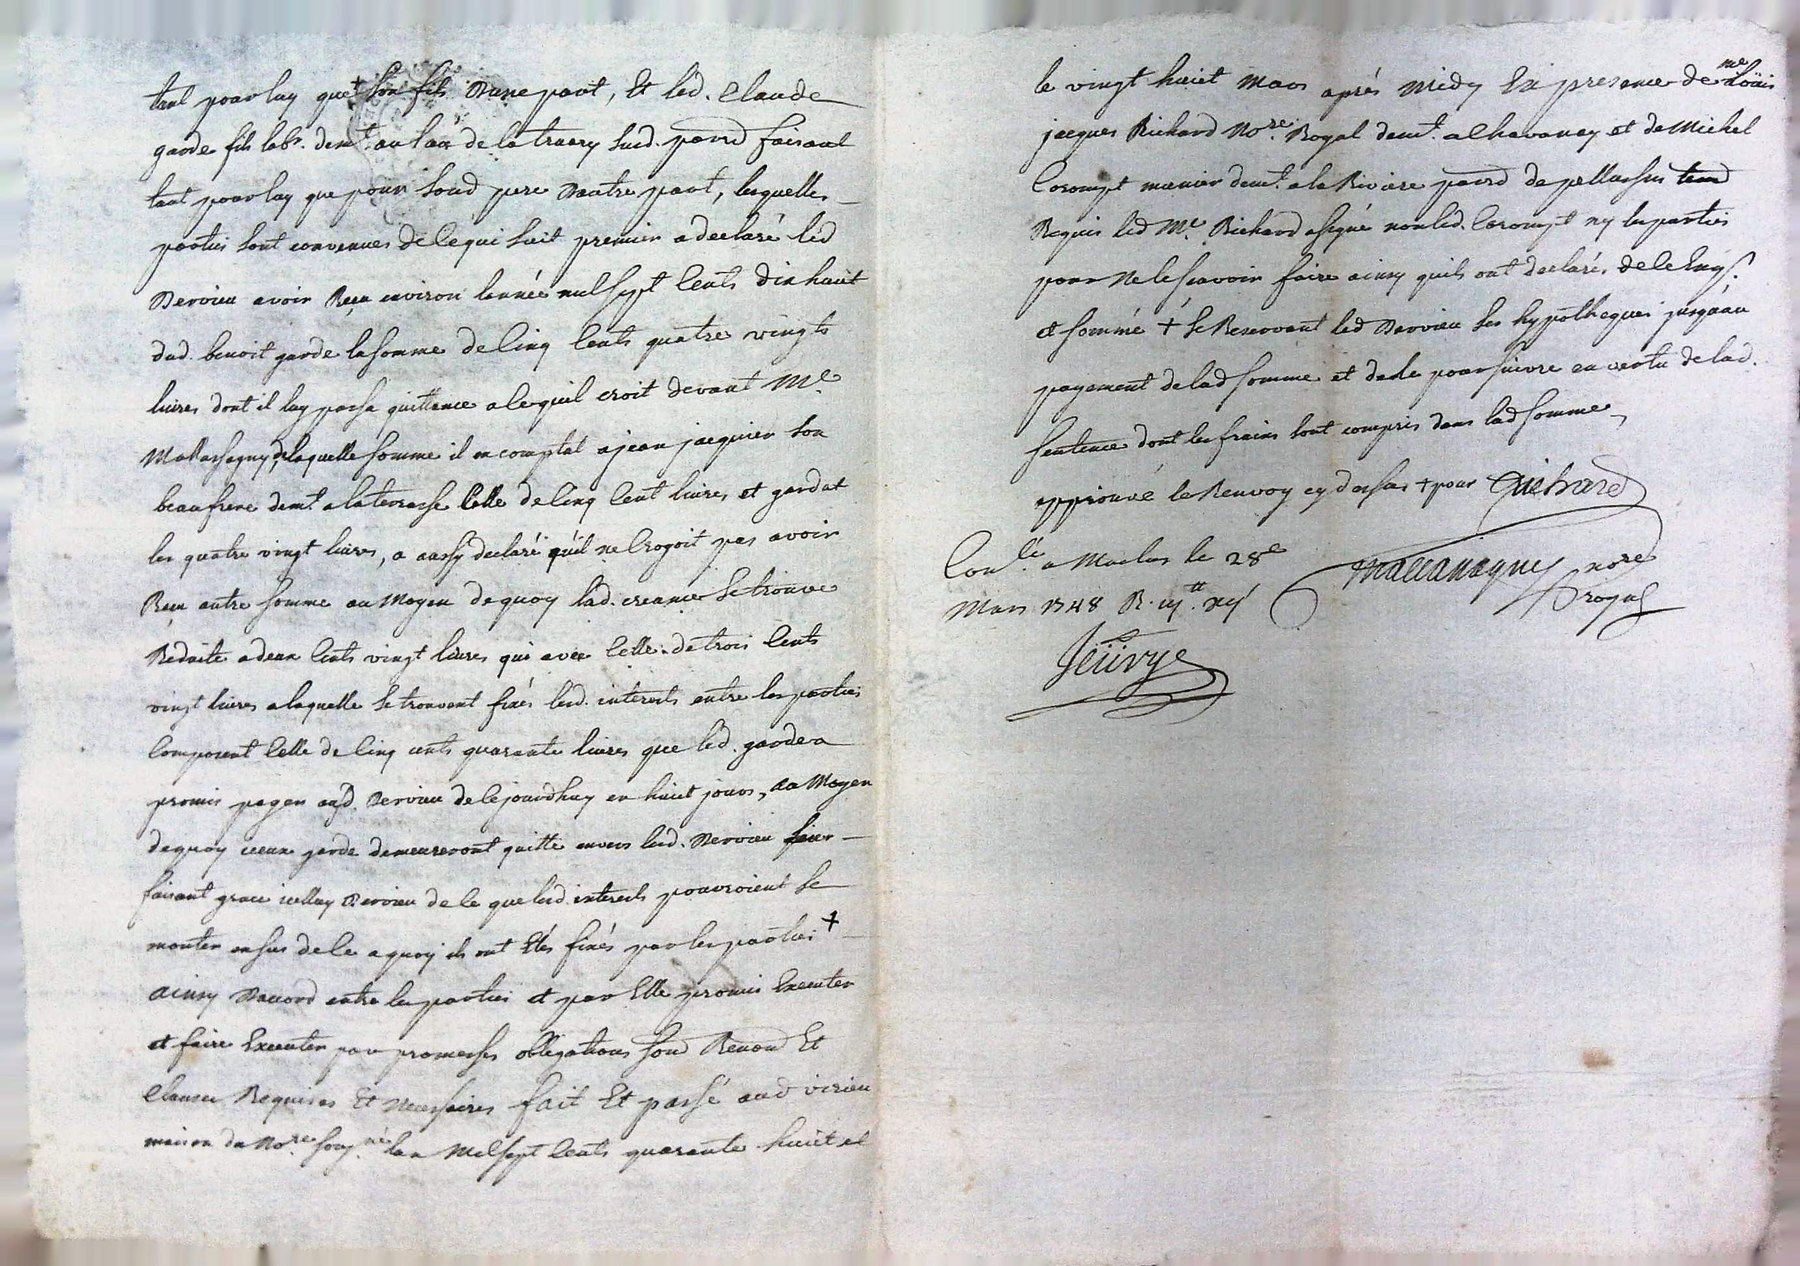 tant pour luy que + pour son fils Dune part, Et led. Claude
garde fils labr. demt. au lieu de la travery susd. parrd faisant
tant pour luy que pour soud pere Dautre part, lesquelles
parties sont convenues de ce qui suit premier a declaré led
Dervieu avoir Reçu environ lannée mil sept Cents Dix huit
dud. benoit garde la somme de Cinq Cents quatre vingts
livres dont il luy passa quittance a ce quil croit devant Me.
de laquelle somme il en comptat a jean jacquier son
beaufrere demt a la terrasse Celle de Cinq Cent livres et gardat
les quatre vingt livres, a aussy declaré quil ne Croyoit pas avoir
Reçu autre somme au Moyen de quoy lad. creance se trouve
Reduite a deux Cents vingt livres qui avec Celle de trois Cents
vingt livres a laquelle se trouvent fixés lesd. interests entre les parties
Composent Celle de Cinq cents quarante livres que led. garde a
promis payer aud. Dervieu de ce jourdhuy en huict jours, au Moyen
de quoy iceux garde demeureront quitte envers led. Dervieu
faisant grace icelluy Dervieu de ce que lesd. interests pourroient se
monter en sus de ce a quoy ils ont Etés fixés par les parties +
ainsy Daccord entre les parties et par Elle promis Executer
et faire Executer par promesses obligations soud Renond Et
Clauses Requises Et Necessaires fait Et passé aud virieu
maison du Nore. sousne. lan Mil sept Cents quarante huict et
le vingt huict Mars après Midy En presence de me Loüis
jacques Richard Nore. Royal demt. a Chavanay et de Michel
Corompt munier demt. a la Riviere parrd de pellussin
Requis led Me. Richard a signé non led. Corompt ny les parties
pour Ne le sçavoir faire ainsy quils ont declarés de ce Enqs.
et sommé + se Reservant led Dervieu ses hypotheques jusquau
payement de lad somme et de le poursuivre en vertu de lad.
sentence dont les fraix sont compris dans lad somme,
approuvé le Renvoy cy dessus + pour Richard
Conlé. a Maclas le 28e
nore royal
Mars 1748 R.